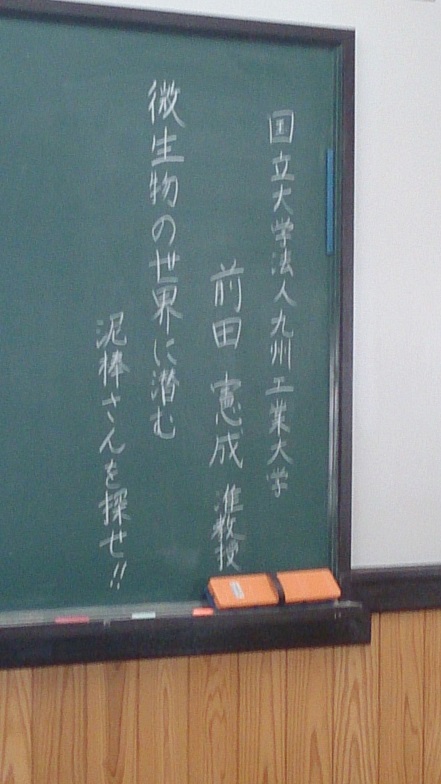 国立大学法人九州工業大学
前田 憲成 准教授
微生物の世界に潜む
泥棒さんを探せ!!